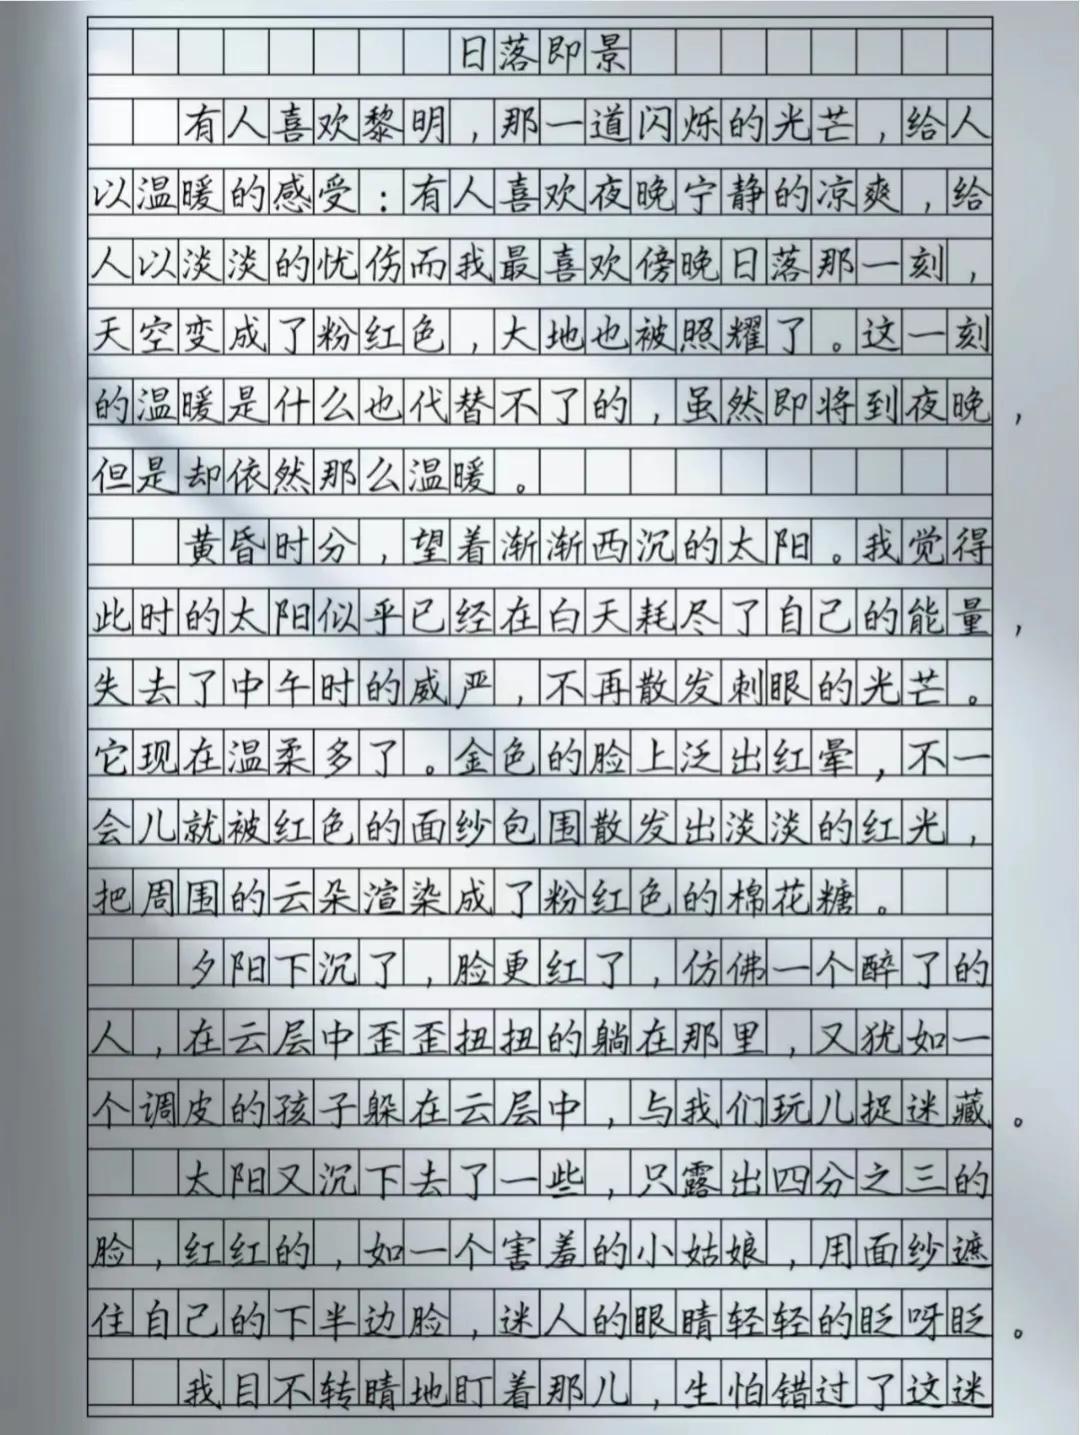 日落即景
有人喜欢黎明，那一道闪烁的光芒，给人
以温暖的感受：有人喜欢夜晚宁静的凉爽，给
人以淡淡的忧伤而我最喜欢傍晚日落那一刻，
天空变成了粉红色，大地也被照耀了。这一刻
的温暖是什么也代替不了的，虽然即将到夜晚，
但是却依然那么温暖。
黄昏时分，望着渐渐西沉的太阳。我觉得
此时的太阳似乎已经在白天耗尽了自己的能量，
失去了中午时的威严，不再散发刺眼的光芒。
它现在温柔多了。金色的脸上泛出红晕，不一
会儿就被红色的面纱包围散发出淡淡的红光，
把周围的云朵渲染成了粉红色的棉花糖。
夕阳下沉了，脸更红了，仿佛一个醉了的
人，在云层中歪歪扭扭的躺在那里，又犹如一
个调皮的孩子躲在云层中，与我们玩儿捉迷藏。
太阳又沉下去了一些，只露出四分之三的
脸，红红的，如一个害羞的小姑娘，用面纱遮
住自己的下半边脸，迷人的眼睛轻轻的眨呀眨。
我目不转睛地盯着那儿，生怕错过了这迷